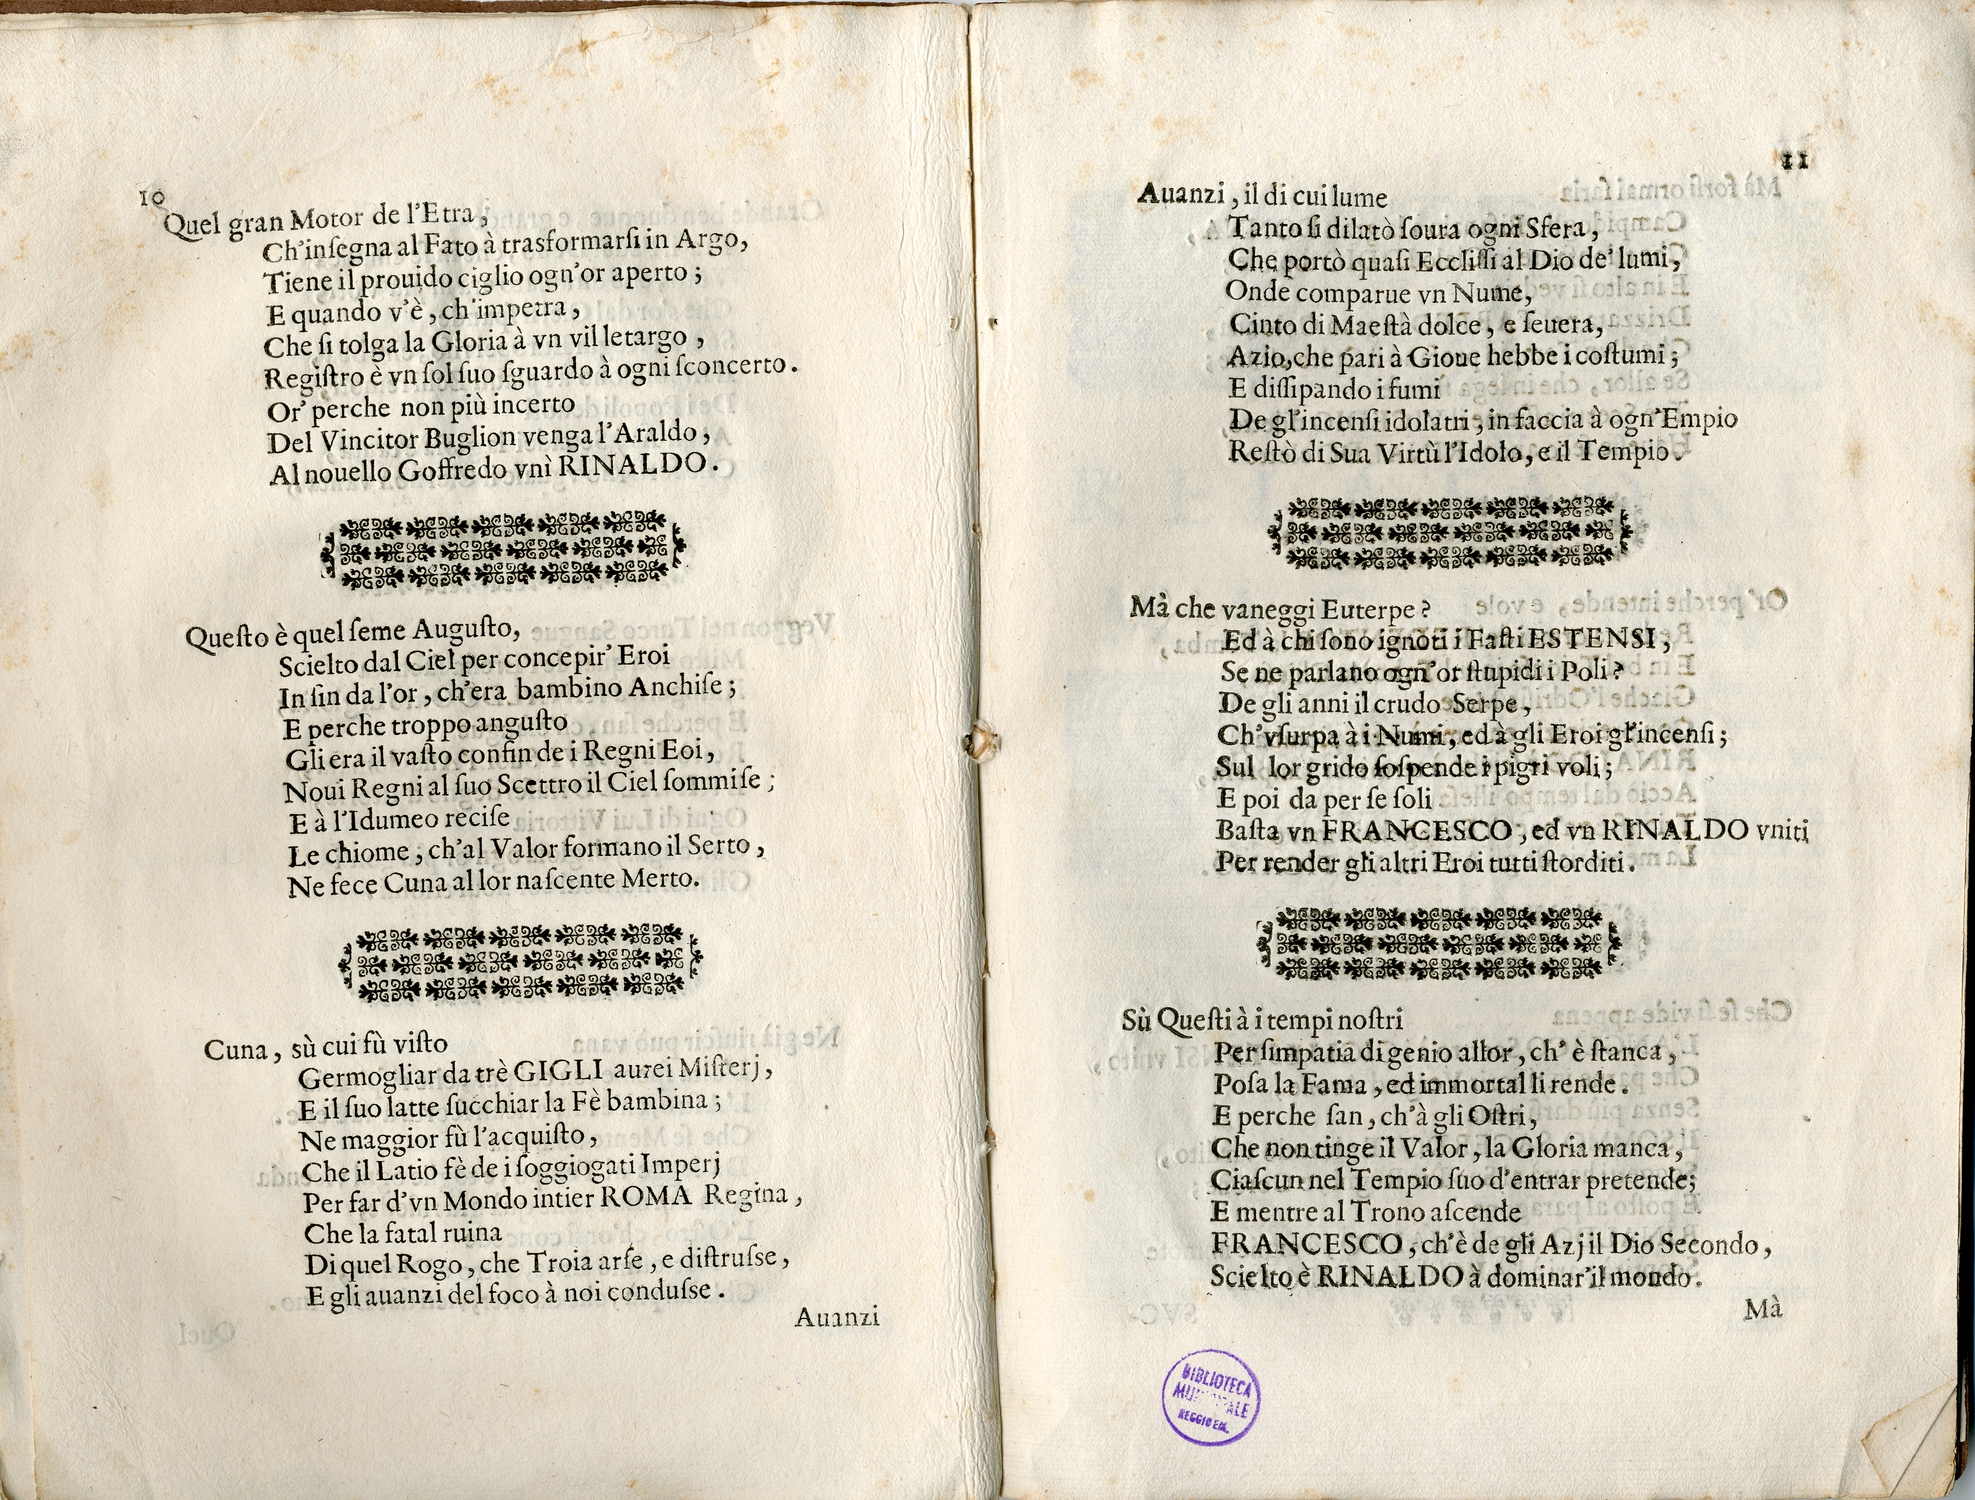 10
Quel gran Motor de l'Etra,
Ch'inſegna al Fato à trasformarſi in Argo,
Tiene il prouido ciglio ogn'or aperto;
E quando v'è, ch'impetra,
Che ſi tolga la Gloria à vn vil letargo,
Regiſtro è vn ſol ſuo ſguardo à ogni ſconcerto.
Or' perche non più incerto
Del Vincitor Buglion venga l'Araldo,
Al nouello Goffredo vnì RINALDO.
Queſto è quel ſeme Auguſto,
Scielto dal Ciel per concepir' Eroi
In ſin da l'or, ch'era bambino Anchiſe;
E perche troppo anguſto
Gli era il vaſto confin de i Regni Eoi,
Noui Regni al ſuo Scettro il Ciel ſommiſe;
E à l'Idumeo reciſe
Le chiome, ch'al Valor formano il Serto,
Ne fece Cuna al lor naſcente Merto.
Cuna, sù cui fù viſto
Germogliar da trè GIGLI aurei Miſterj,
E il ſuo latte ſucchiar la Fè bambina;
Ne maggior fù l'acquiſto,
Che il Latio fè de i ſoggiogati Imperj
Per far d'vn Mondo intier ROMA Regina,
Che la fatal ruina
Di quel Rogo, che Troia arſe, e diſtruſſe,
E gli auanzi del foco à noi conduſſe.
Auanzi
11
Auanzi, il di cui lume
Tanto ſi dilatò ſoura ogni Sfera,
Che portò quaſi Eccliſſi al Dio de' lumi,
Onde comparue vn Nume,
Cinto di Maeſtà dolce, e ſeuera,
Azio, che pari à Gioue hebbe i coſtumi;
E diſſipando i fumi
De gl'incenſi idolatri, in faccia à ogn'Empio
Reſtò di Sua Virtù l'Idolo, e il Tempio.
Mà che vaneggi Euterpe?
Ed à chi ſono ignoti i Faſti ESTENSI,
Se ne parlano ogn'or ſtupidi i Poli?
De gli anni il crudo Serpe,
Ch'vſurpa à i Numi, ed à gli Eroi gl'incenſi;
Sul lor grido ſoſpende i pigri voli;
E poi da per ſe ſoli
Baſta vn FRANCESCO, ed vn RINALDO vniti
Per render gli altri Eroi tutti ſtorditi.
Sù Queſti à i tempi noſtri
Per ſimpatia di genio allor, ch'è ſtanca,
Poſa la Fama, ed immortal li rende.
E perche ſan, ch'à gli Oſtri,
Che non tinge il Valor, la Gloria manca,
Ciaſcun nel Tempio ſuo d'entrar pretende;
E mentre al Trono aſcende
FRANCESCO, ch'è de gli Azj il Dio Secondo,
Scielto è RINALDO à dominar' il mondo.
Mà
BIBLIOTECA
MUNICIPALE
REGGIO EM.